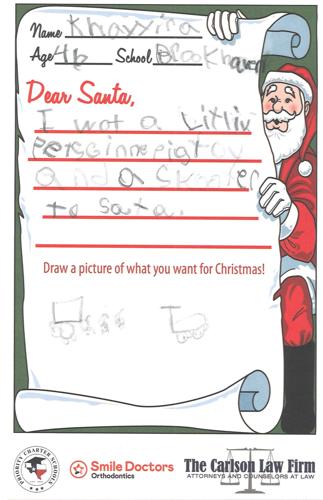 Name Khayyira
Age School Brookhaven
Dear Santa,
I wot a Litliv
and a Skooter
to Sata.
Draw a picture of what you want for Christmas!
PRIORITY CHARTER SCHOOLS
Smile Doctors
Orthodontics
The Carlson Law Firm
ATTORNEYS AND COUNSELORS AT LAW